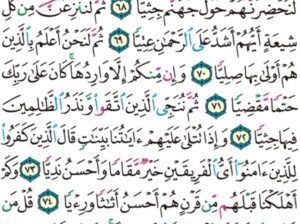 لَنُحْضِرَنَّهُمْ حَوْلَ جَهَنَّمَ جِثِيًّا ٦٨ ثُمَّ لَنَنزِعَنَّ مِن كُلِّ
شِيعَةٍ أَيُّهُمْ أَشَدُّ عَلَى ٱلرَّحْمَٰنِ عِتِيًّا ٦٩ ثُمَّ لَنَحْنُ أَعْلَمُ بِٱلَّذِينَ
هُمْ أَوْلَىٰ بِهَا صِلِيًّا ٧٠ وَإِن مِّنكُمْ إِلَّا وَارِدُهَا كَانَ عَلَىٰ رَبِّكَ
حَتْمًا مَّقْضِيًّا ٧١ ثُمَّ نُنَجِّى ٱلَّذِينَ ٱتَّقَوا۟ وَّنَذَرُ ٱلظَّٰلِمِينَ
فِيهَا جِثِيًّا ٧٢ وَإِذَا تُتْلَىٰ عَلَيْهِمْ ءَايَٰتُنَا بَيِّنَٰتٍ قَالَ ٱلَّذِينَ كَفَرُوا۟
لِلَّذِينَ ءَامَنُوٓا۟ أَىُّ ٱلْفَرِيقَيْنِ خَيْرٌ مَّقَامًا وَأَحْسَنُ نَدِيًّا ٧٣ وَكَمْ
أَهْلَكْنَا قَبْلَهُم مِّن قَرْنٍ هُمْ أَحْسَنُ أَثَٰثًا وَرِءْيًا ٧٤ قُلْ مَن